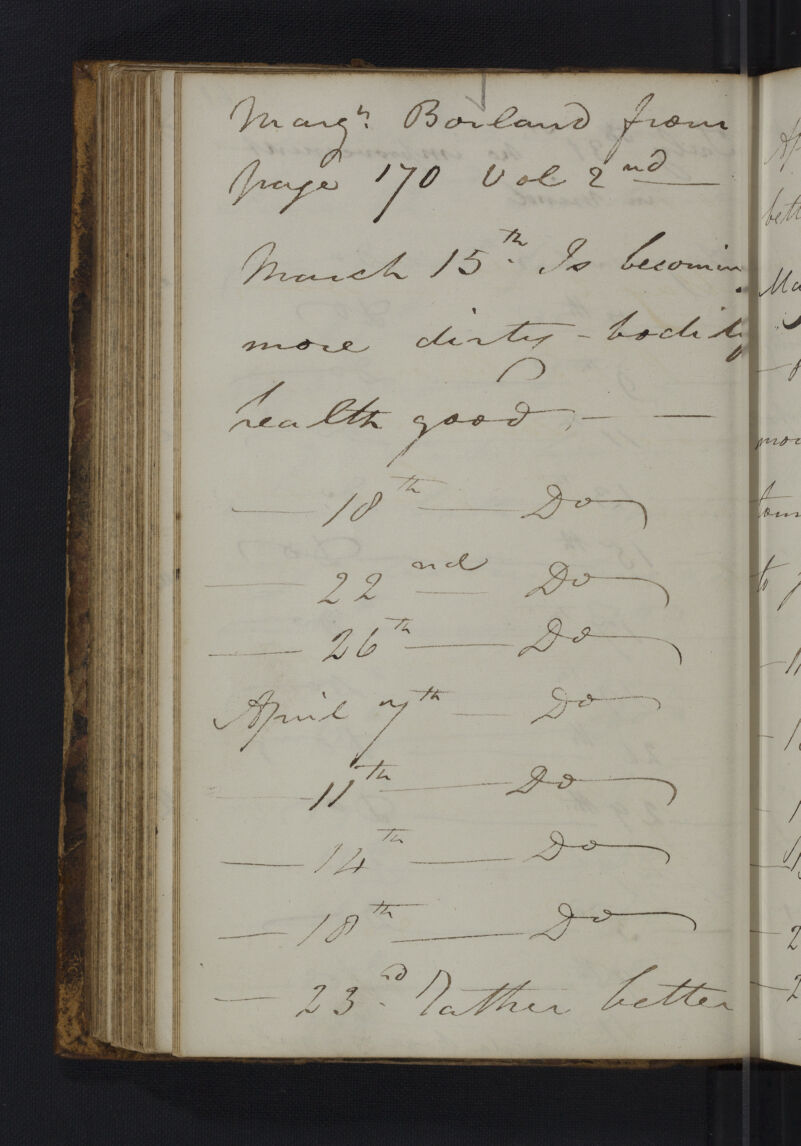 Margt. Borland from
page 170 Vol 2nd
March 15th. Is becoming
more dirty - bodily
health good, — —
— 18th — Do
— 22nd — Do
— 26th — Do
April 7th — Do
— 11th — Do
— 14th — Do
— 18th — Do
— 23rd. Rather better